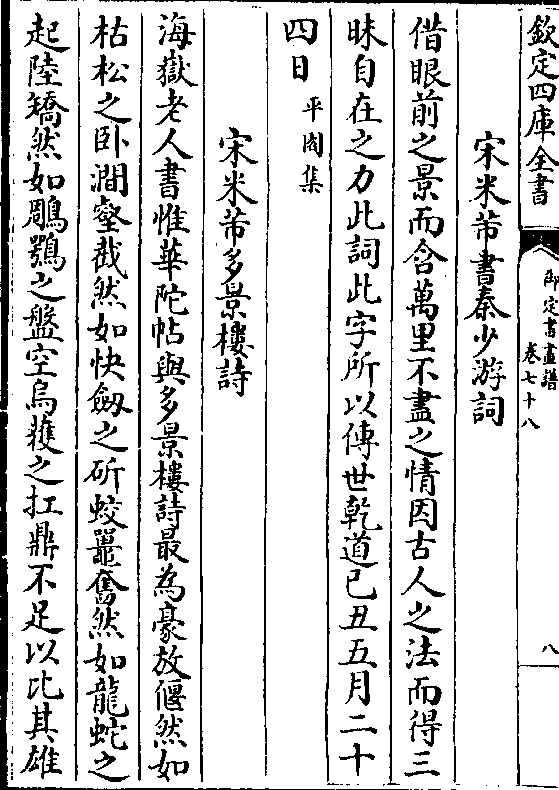 欽定四庫全書
御定書畫譜
卷七十八
八
宋米芾書秦少游詞
借眼前之景而含萬里不盡之情因古人之法而得三
昧自在之力此詞此字所以傳世乾道己丑五月二十
四日 平園集
宋米芾多景樓詩
海嶽老人書惟華陀帖與多景樓詩最為豪放偃然如
枯松之卧澗壑截然如快劒之斫蛟鼉奮然如龍蛇之
起陸矯然如鵰鶚之盤空烏獲之扛鼎不足以比其雄